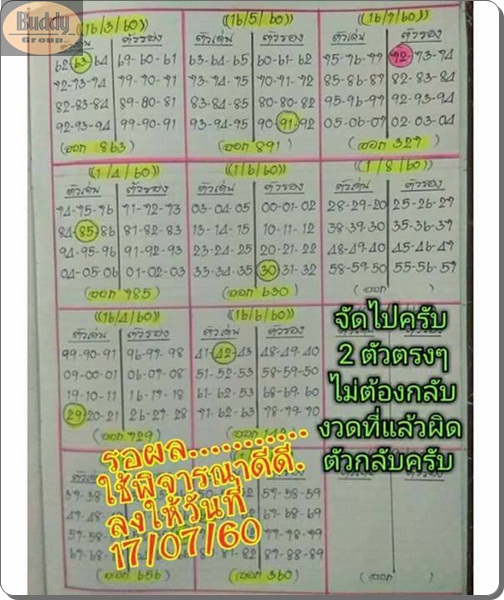 Buddy
Group.
(16/3/60)
((16/5/60))
(16/7/60)
ตัวเด่น ตัวรอง
ตัวเด่น ตัวรอง
62-63-64 69-60-61
63-64-65 60-61-62
95-96-97 92-93-94
92-93-94 99-90-91
93-94-95 90-91-92
85-86-87 82-83-84
82-83-84 89-80-81
83-84-85 80-80-82
95-96-97 92-93-94
92-93-94 99-90-91
93-94-95 90-91-92
05-06-07 02-03-04
(ออก 863)
(ออก 891)
(ออก 329)
(1/4/60)
((1/6/60))
((1/8/60))
ตัวเด่น ตัวรอง
ตัวเด่น ตัวรอง
ตัวเด่น ตัวรอง
94-95-96 91-92-93
03-04-05 00-01-02
28-29-20 25-26-27
84-85-86 81-82-83
13-14-15 10-11-12
38-39-30 35-36-37
94-95-96 91-92-93
23-24-25 20-21-22
48-49-40 45-46-47
04-05-06 01-02-03
33-34-35 30-31-32
58-59-50 55-56-57
(ออก 985)
(ออก 630)
(ออก )
(16/4/60)
((16/6/60))
ตัวเด่น ตัวรอง
ตัวเด่น ตัวรอง
99-90-91 96-97-98
41-42-43 48-49-40
09-00-01 06-07-08
51-52-53 58-59-50
19-10-11 16-17-18
61-62-63 68-69-60
29-20-21 26-27-28
91-62-63 78-79-70
(ออก 929)
จัดไปครับ
2 ตัวตรงๆ
ไม่ต้องกลับ
งวดที่แล้วผิด
ตัวกลับครับ
รอผล............
ใช้พิจารณาดีดี.
ลงให้วันที่
17/07/60
57-58-59
67-68-69
77-78-79
81-82 87-88-89
(ออก 656)
(ออก 360)
(ออก )